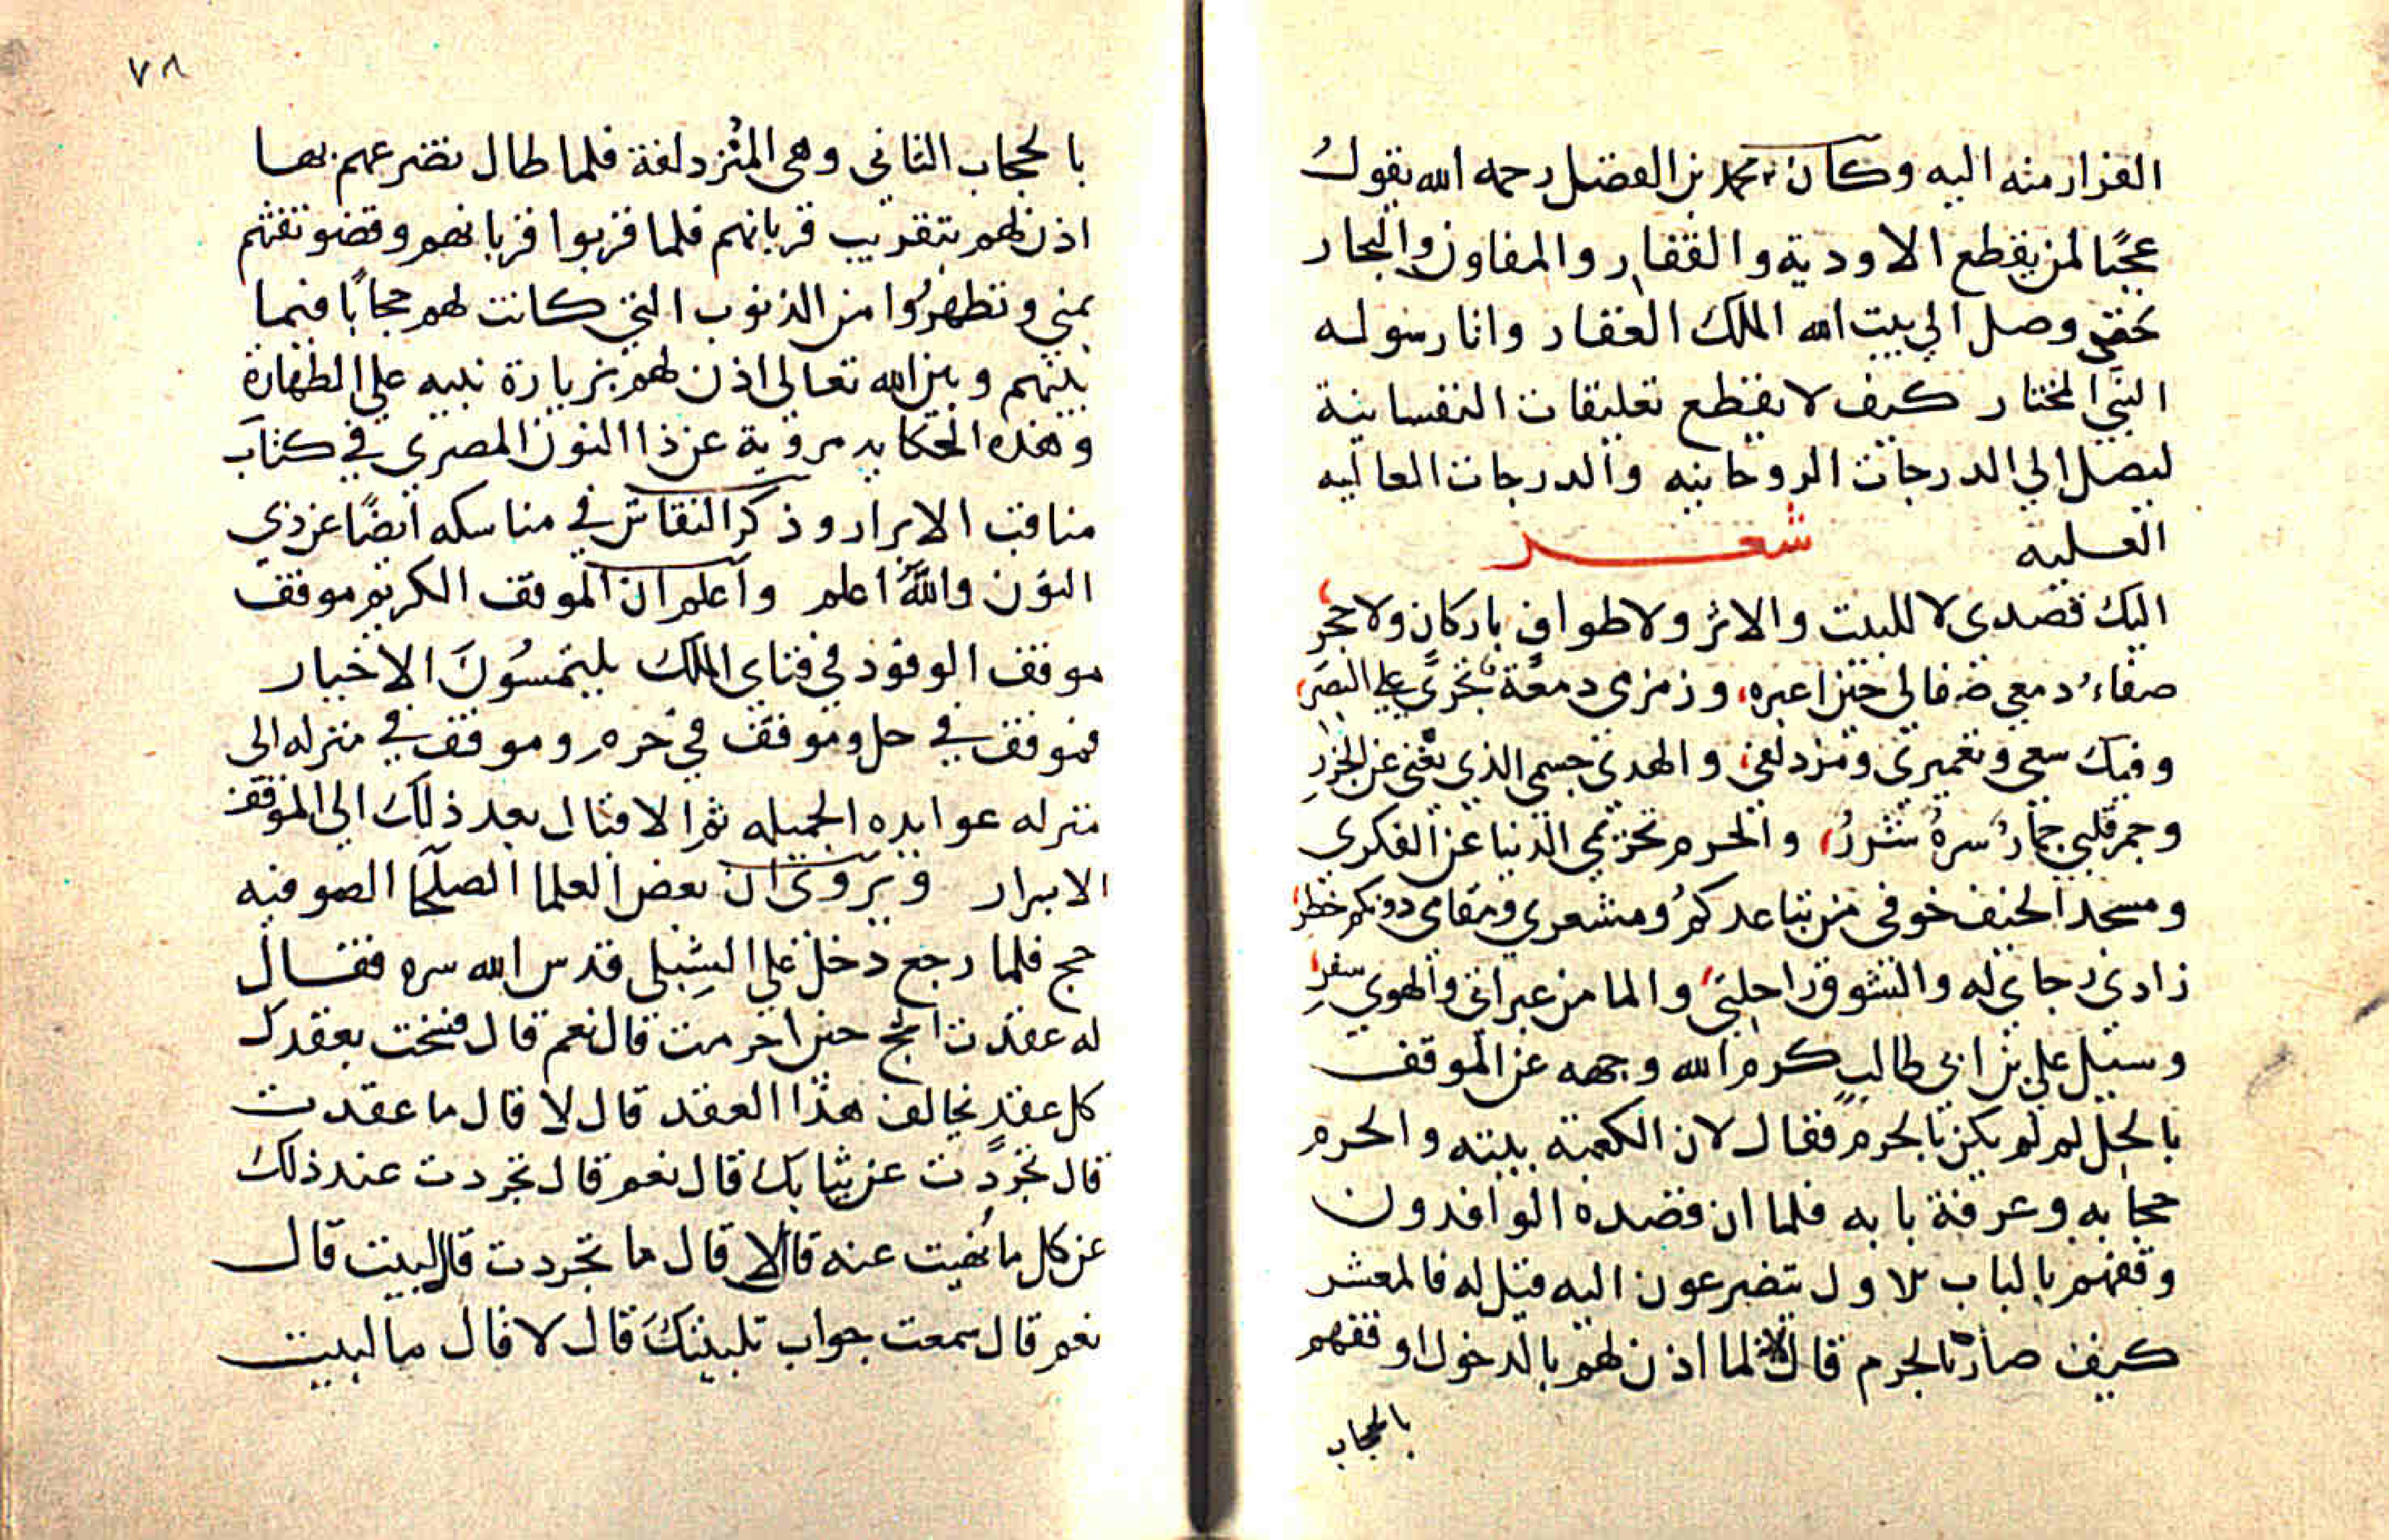 الفرار منه اليه وكان محمد بن الفضل رحمه الله يقول
عجبًا لمن يقطع الاودية والقفار والمفاوز والبحار
حتى وصل الي بيت الله الملك الغفار واثار سوله
النبي المختار كيف لا يقطع تعليقات النفسانية
ليصل الي الدرجات الروحانيه والدرجات العاليه
العليه شعر
اليك قصدي لا للبيت والاثر ولا طواف باركان ولا حجر
صفاء دمعي صفا لي حين اعبره وزمزمي دمعة تجري علي البصر
وفيك سعي وتعميري ومزدلفي والهدي جسمي الذي يغني عن الجزر
وجمر قلبي جمار سره شرر والحرم تحريمي الدنيا عن الفكري
ومسجد الخيف خوفي من تباعدكم ومشعري ومقامي دونكم خطر
زادي رجاي له والشوق راحلتي والما من عبراتي والهوي سفر
وسيل علي بن ابي طالب كرم الله وجهه عن الموقف
بالحل لم لم يكن بالحرم فقال لان الكعبة بيته والحرم
حجابه وعرفة بابه فلما ان قصده الوافدون
وقفهم بالباب الاول يتضرعون اليه قيل له فالمعشر
كيف صار بالحرم قال لانه لما اذن لهم بالدخول اوقفهم
بالحجاب
٧٨
بالحجاب الثاني وهي المزدلفة فلما طال تضرعهم بها
اذن لهم بتقريب قربانهم فلما قربوا قربانهم وقضو تفثهم
بمني وتطهروا من الذنوب التي كانت لهم حجابًا فيما
بينهم وبين الله تعالي اذن لهم بزيارة بيته علي الطهارة
وهذه الحكايه مروية عن ذا النون المصري في كتاب
مناقب الابرار وذكر النقاش في مناسكه ايضًا عن ذي
النون والله اعلم واعلم ان الموقف الكريم موقف
موقف الوفود في فناي الملك يلتمسون الاخبار
فموقف في حل وموقف في حرم وموقف في منزله الي
منزله عوايده الجميله ثم الاقبال بعد ذلك الي الموقف
الابرار ويروي ان بعض العلما الصلحا الصوفيه
حج فلما رجع دخل علي الشبلي قدس الله سره فقال
له عقدت الحج حين احرمت قال نعم قال فسخت بعقدك
كل عقد يخالف هذا العقد قال لا قال ما عقدت
قال تجردت عن ثيابك قال نعم قال تجردت عند ذلك
عن كل ما نهيت عنه قال لا قال ما تجردت قال لبيت قال
نعم قال سمعت جواب تلبيتك قال لا قال ما لبيت